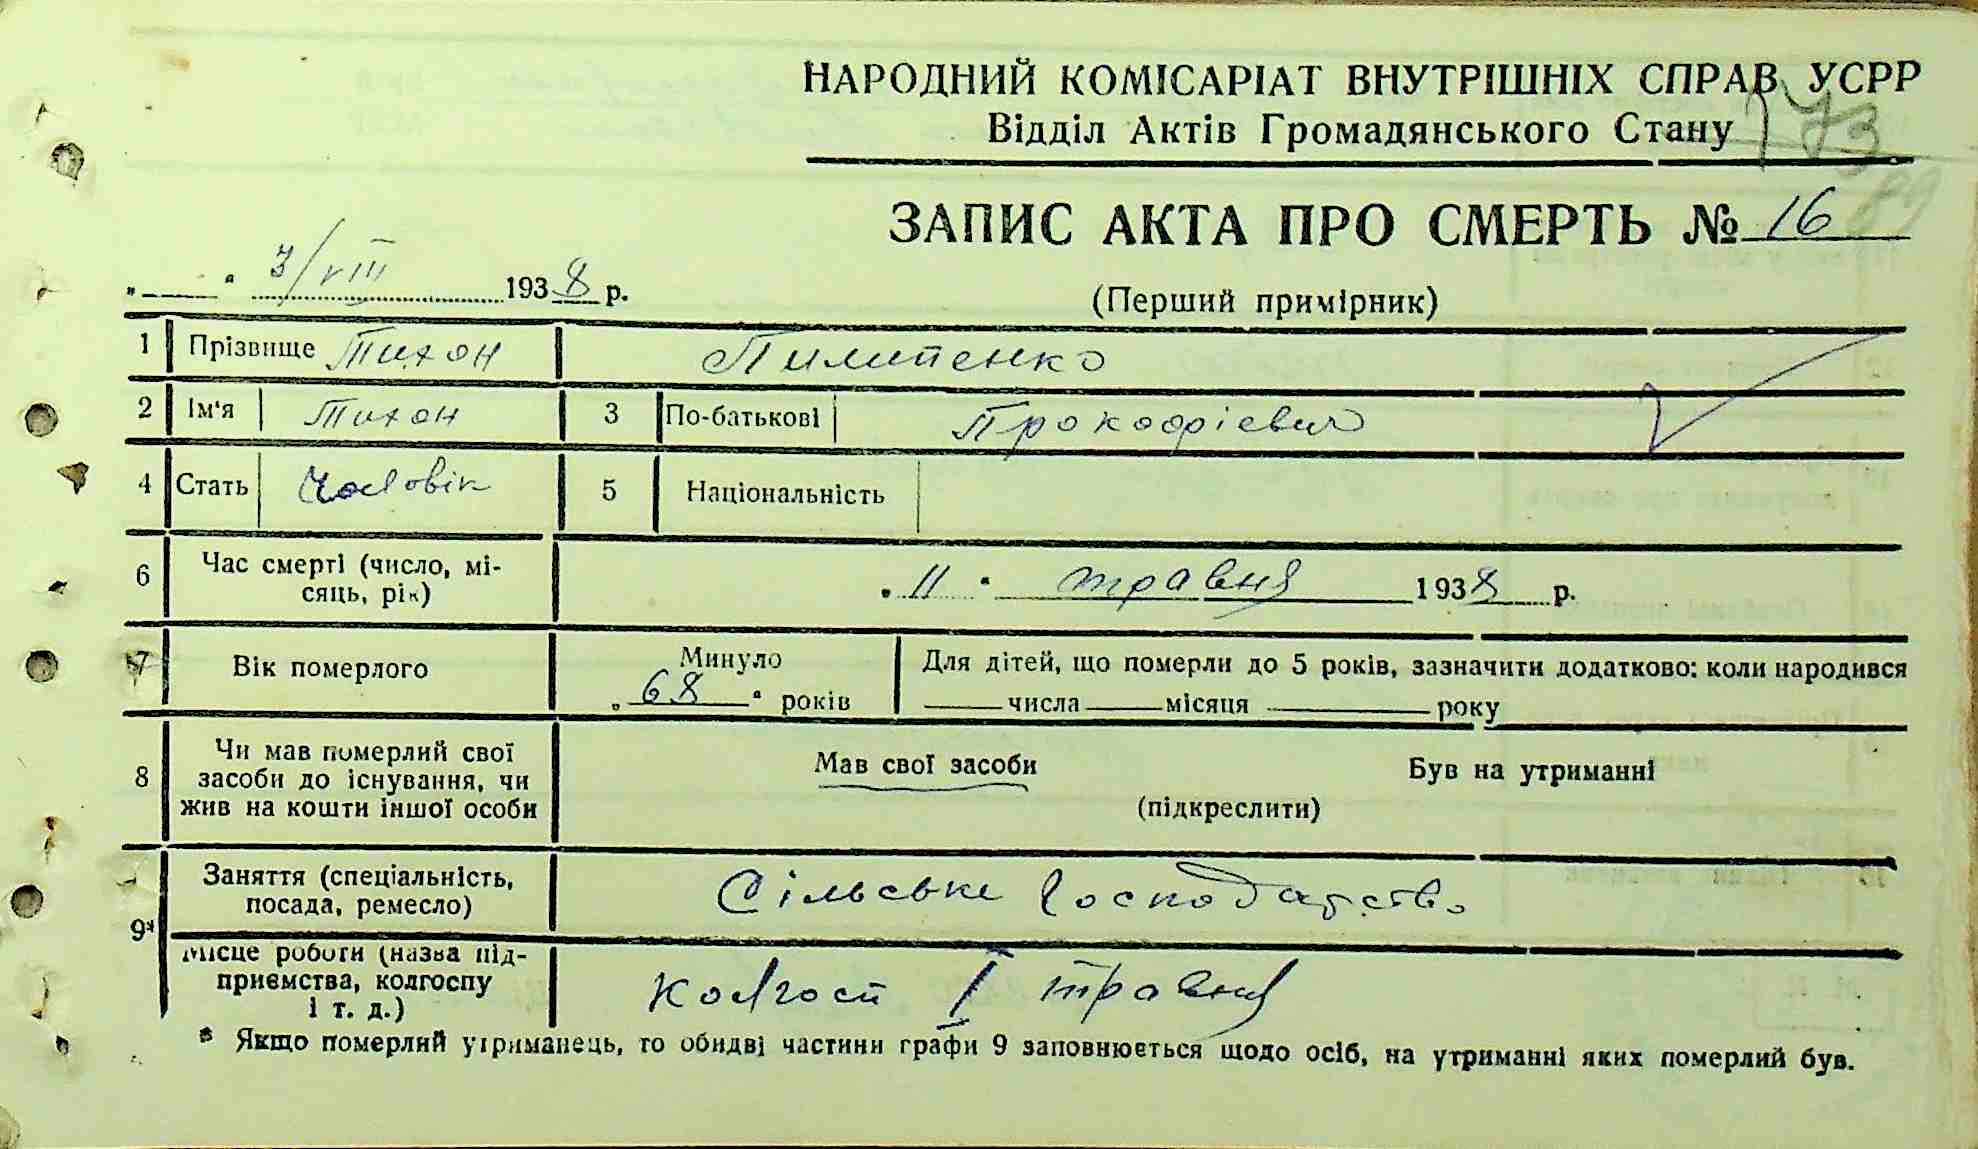 НАРОДНИЙ КОМІСАРІАТ ВНУТРІШНІХ СПРАВ УСРР
Відділ Актів Громадянського Стану 173
89
ЗАПИС АКТА ПРО СМЕРТЬ № 16
„ “ 3/VIII 1938 р.
(Перший примірник)
1 Прізвище Тихон Пилипенко
2 Ім'я Тихон 3 По-батькові Прокофієвич
4 Стать Чоловік 5 Національність
6 Час смерті (число, мі-
сяць, рік) „11“ травня 1938 р.
7 Вік померлого Минуло
„68“ років
Для дітей, що померли до 5 років, зазначити додатково: коли народився
числа місяця року
8 Чи мав померлий свої
засоби до існування, чи
жив на кошти іншої особи
Мав свої засоби Був на утриманні
(підкреслити)
9* Заняття (спеціальність,
посада, ремесло) Сільське Господарство
Місце роботи (назва під-
приємства, колгоспу
і т. д.) Колгосп I травня
* Якщо померлий утриманець, то обидві частини графи 9 заповнюється щодо осіб, на утриманні яких померлий був.